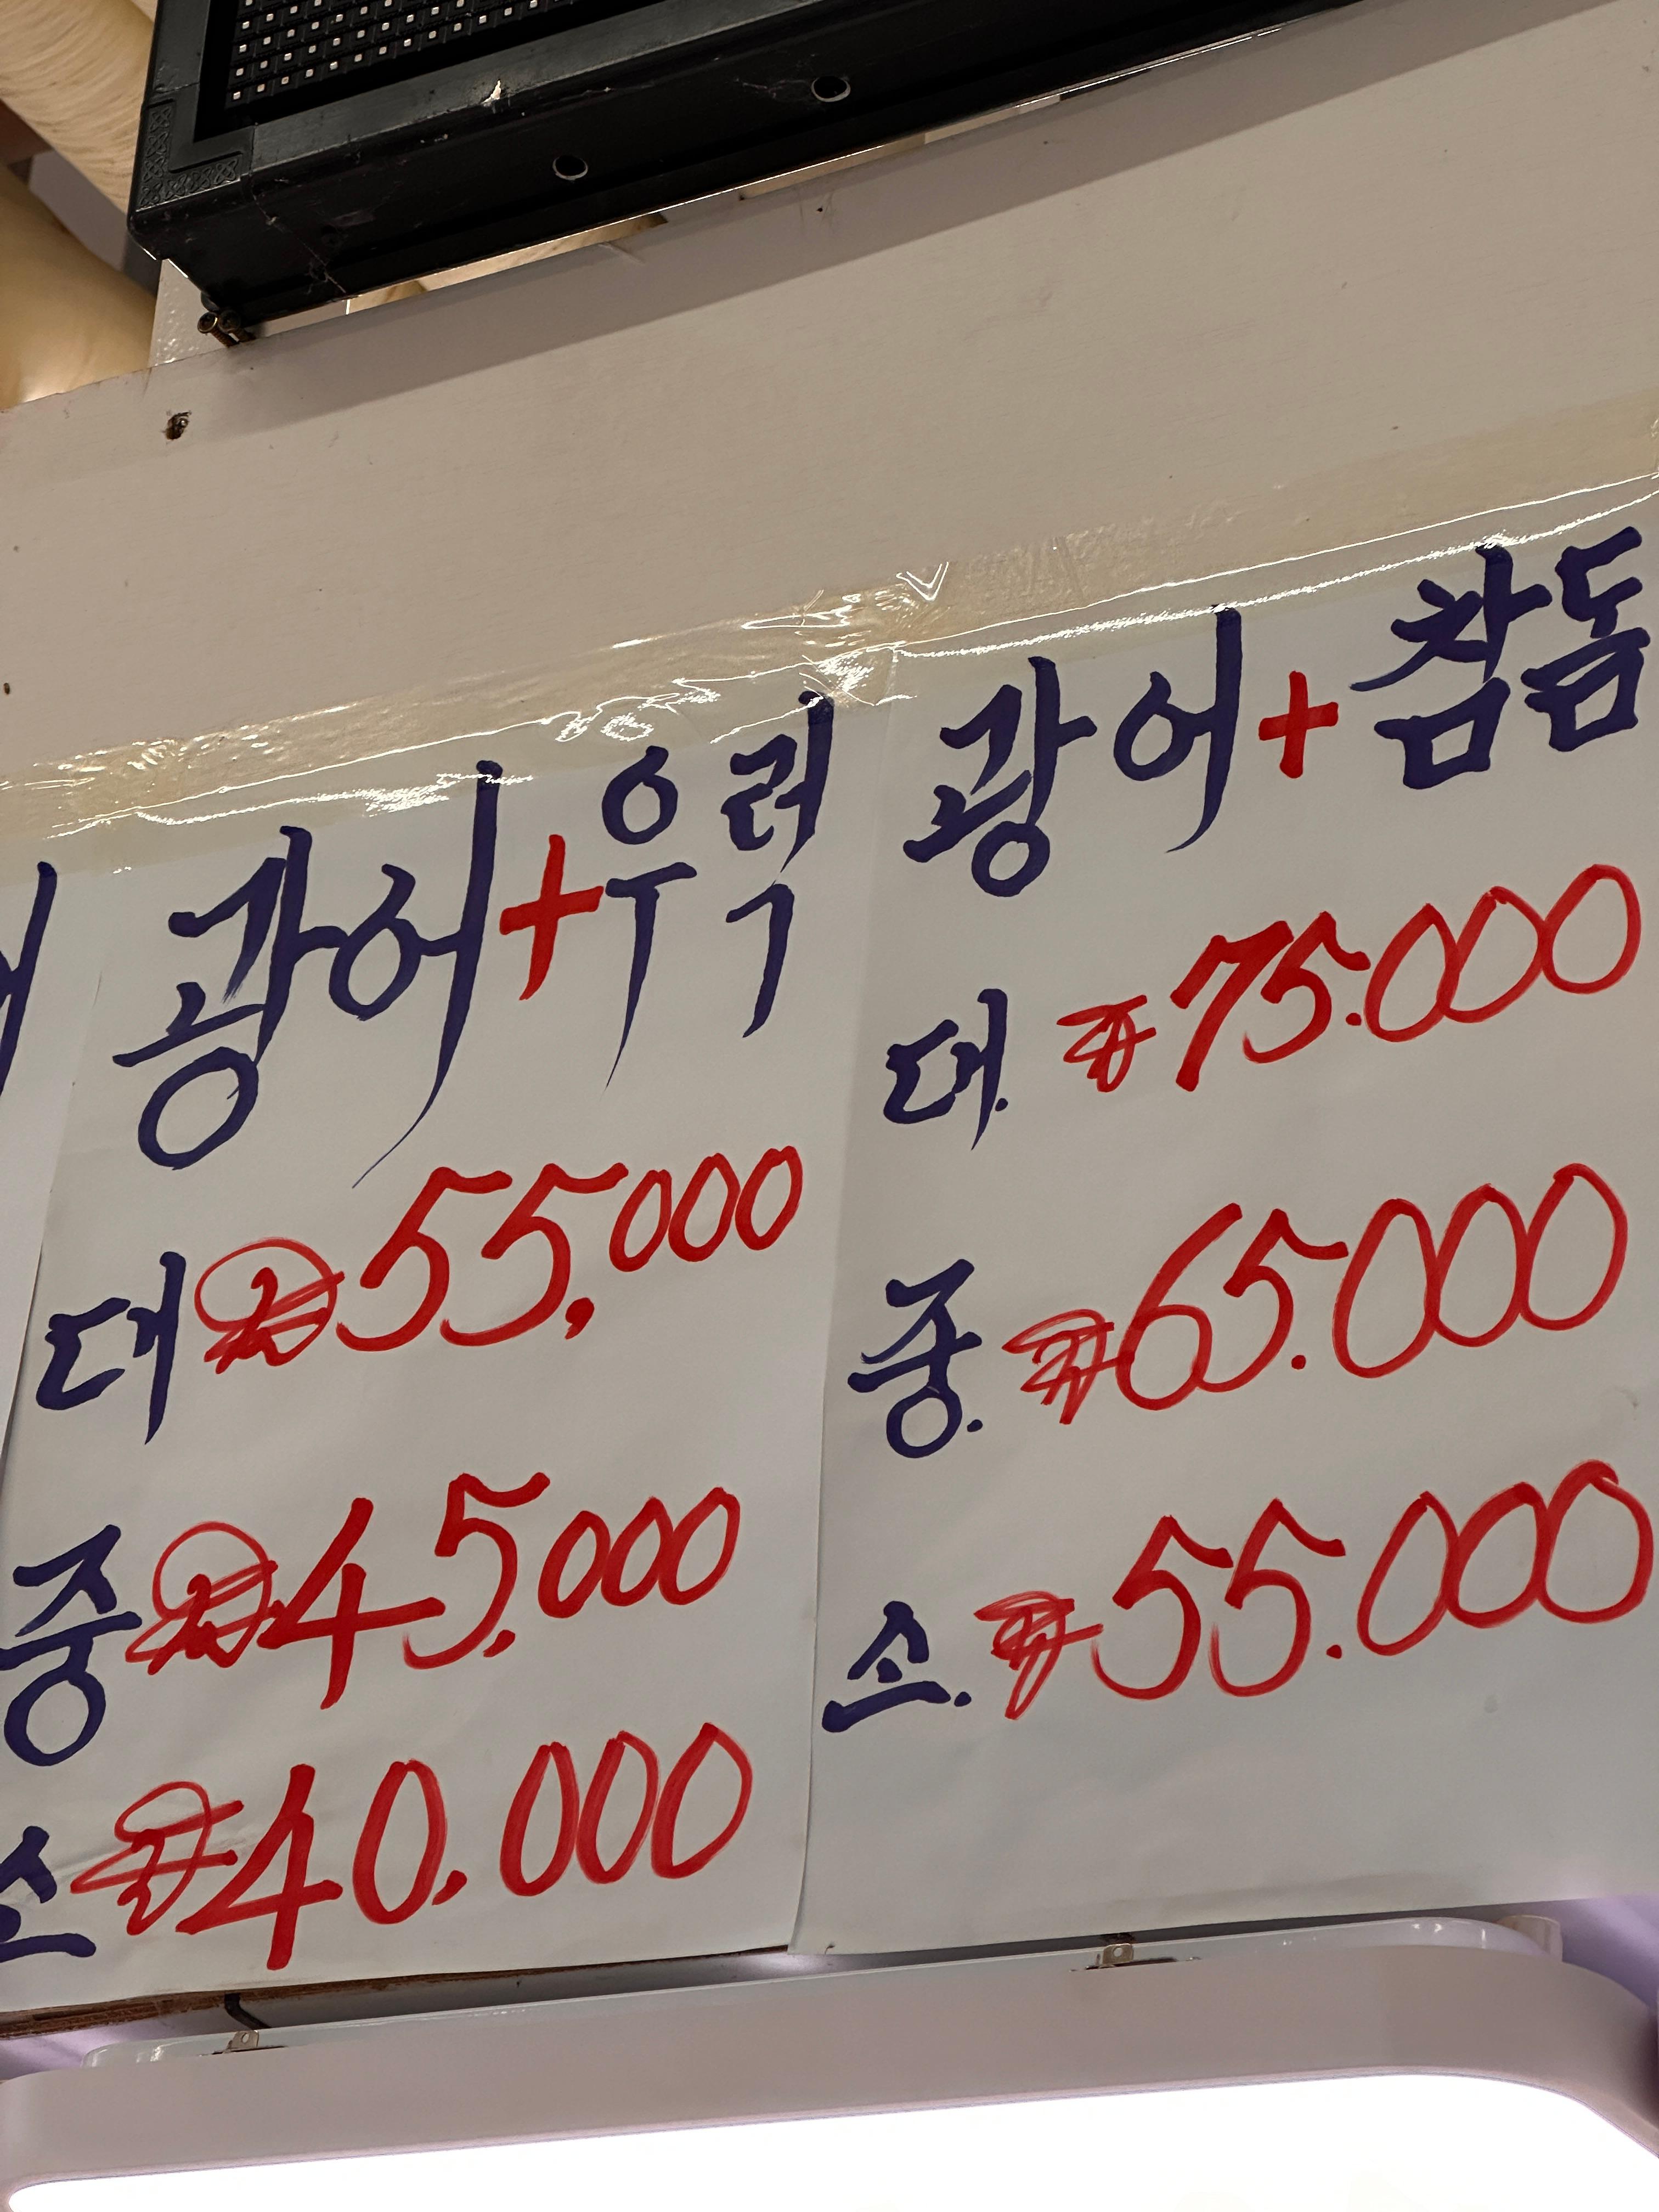 광어+우럭
대 ₩55,000
중 ₩45,000
소 ₩40,000
광어+참돔
대. ₩75.000
중. ₩65.000
소. ₩55.000